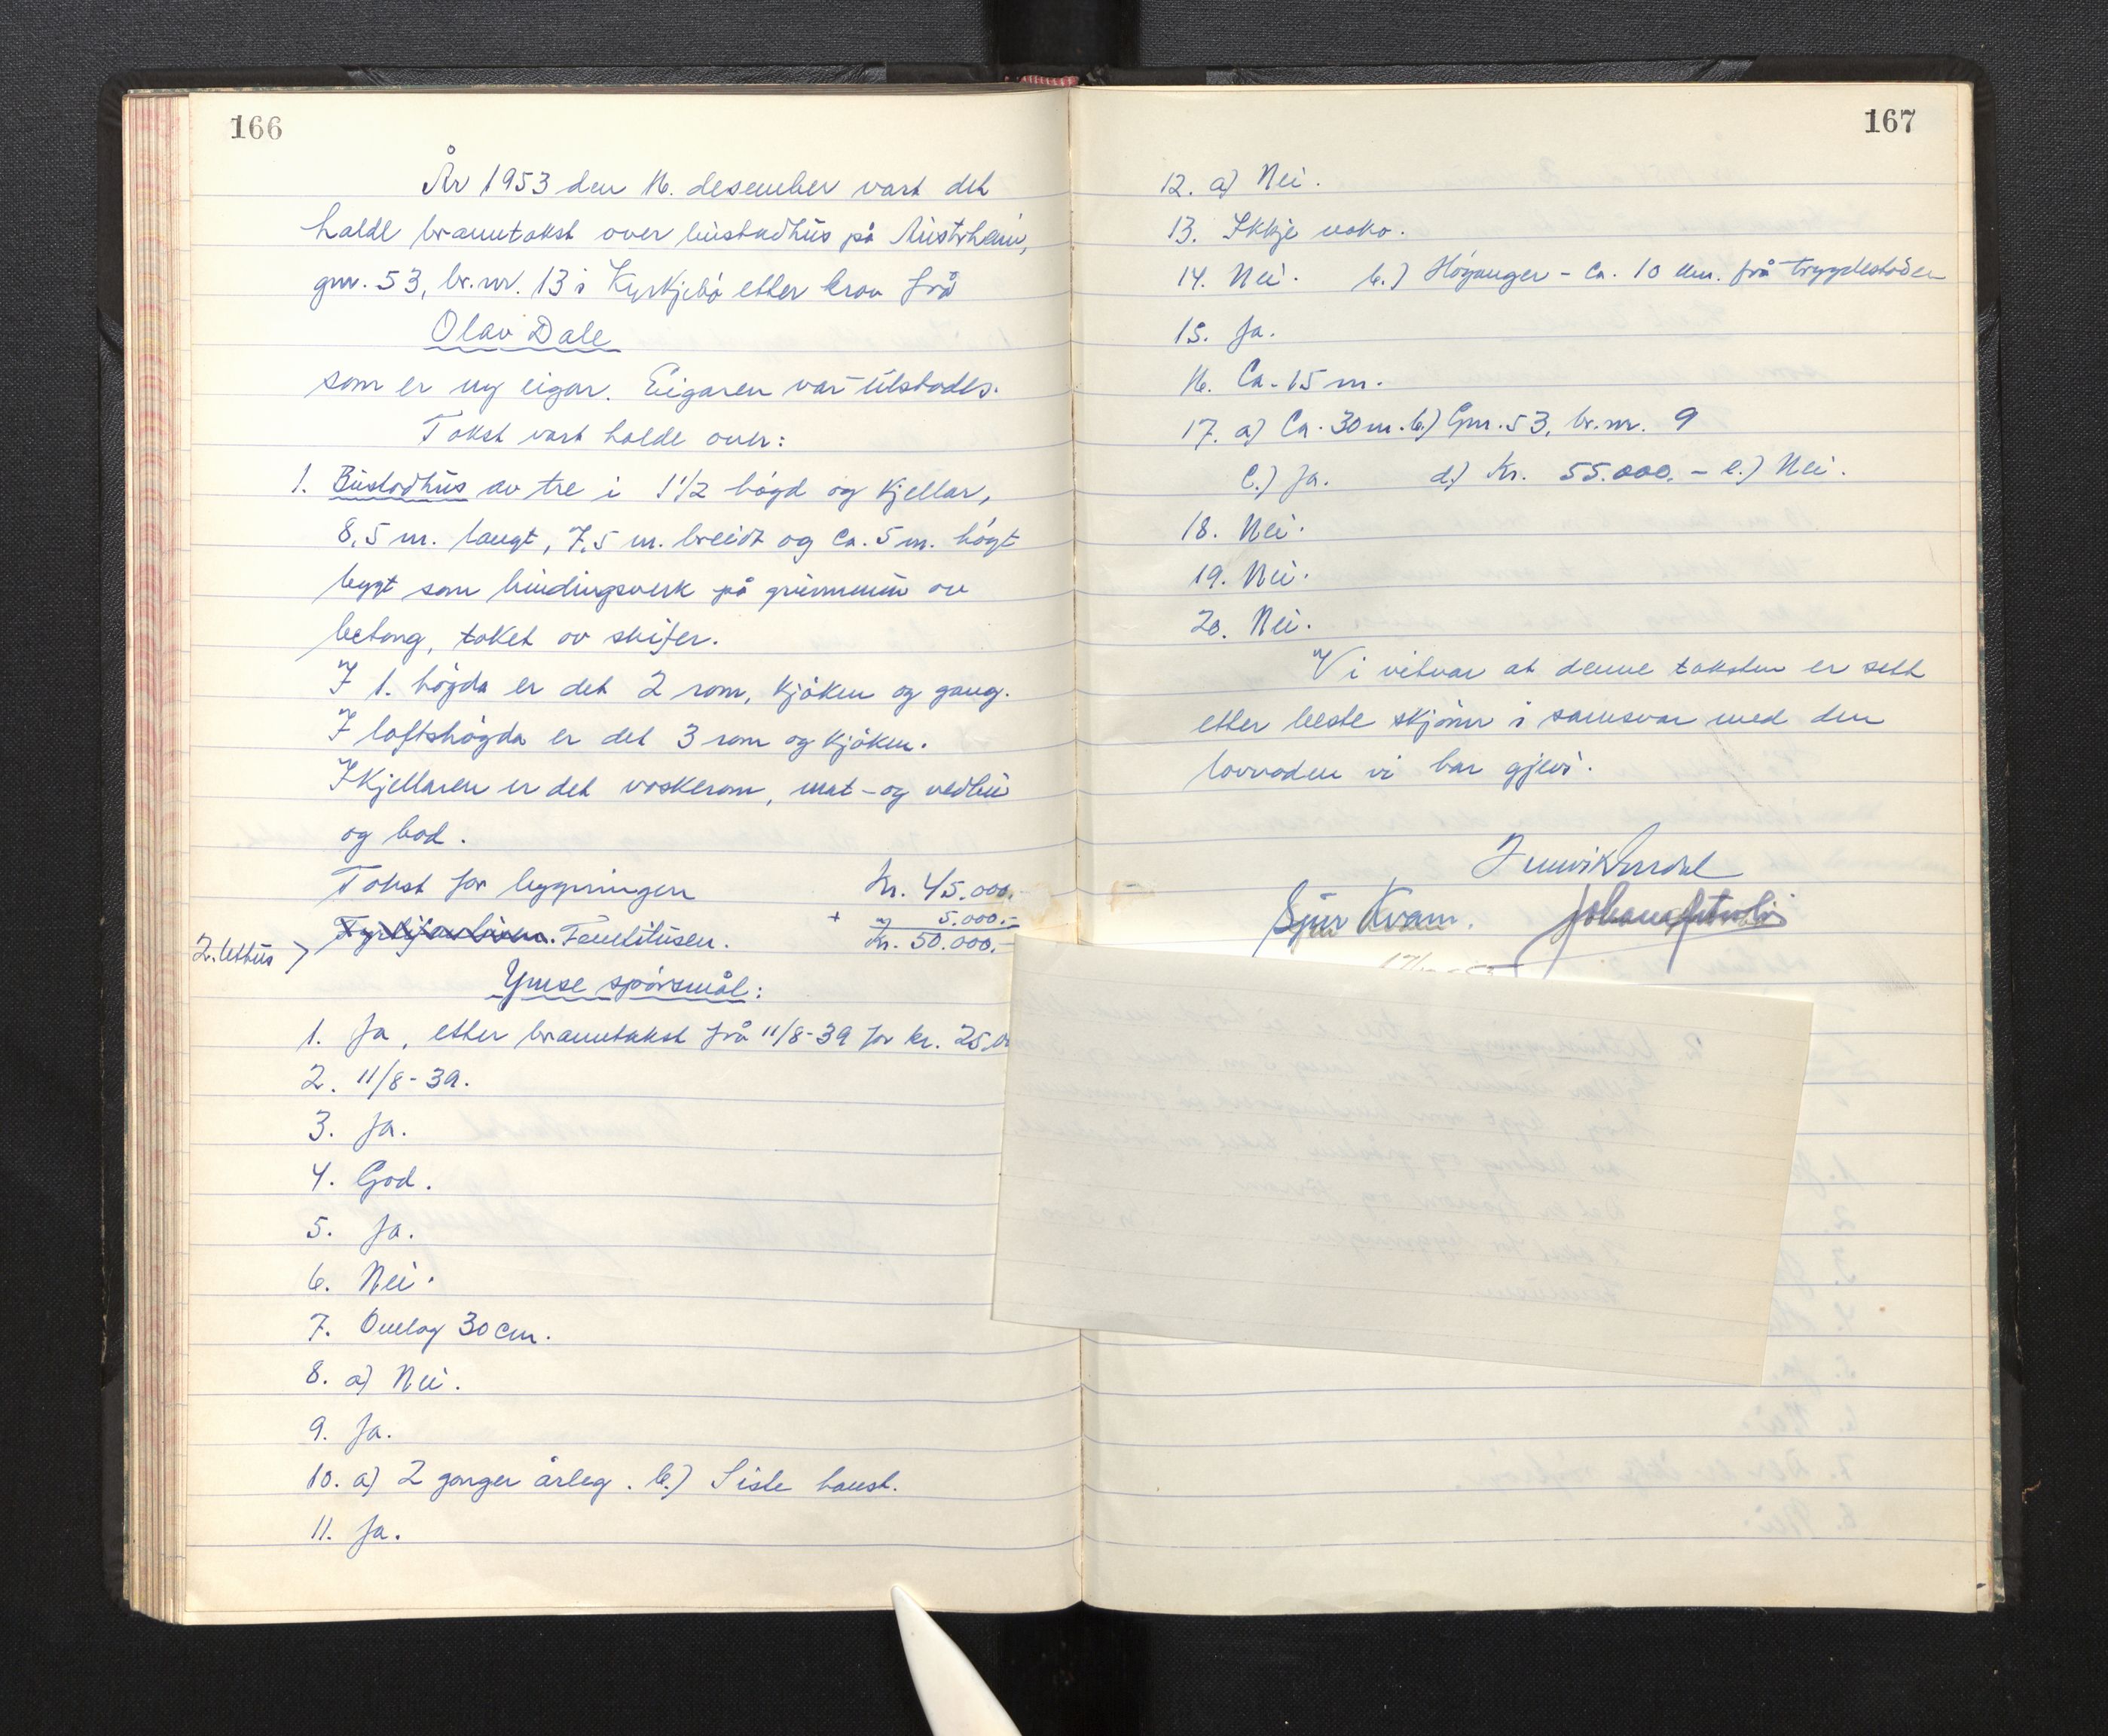 166
År 1953 den 16. desember vart det
halde branntakst over bustadhus på Austrheim,
gnr. 53, br.nr. 13 i Kyrkjebø etter krav frå
Olav Dale
som er ny eigar. Eigaren var tilstades.
Takst vart halde over:
1. Bustadhus av tre i 1 1/2 høgd og kjellar,
8,5 m. langt, 7,5 m. breidt og ca. 5 m. høgt
bygt som bindingsverk på grunnmur av
betong, taket av skifer.
I 1. høgda er det 2 rom, kjøken og gang.
I loftshøgda er det 3 rom og kjøken.
I kjellaren er det vaskerom, mat- og vedbu
og bod.
Takst for bygningen Kr. 45.000.-
2. Uthus > Femtitusen. + " 5.000.-
Kr. 50.000.-
Ymse spørsmål:
1. Ja, etter branntakst frå 11/8-39 for kr. 25.0
2. 11/8-39.
3. Ja.
4. God.
5. Ja.
6. Nei.
7. Omlag 30 cm.
8. a) Nei.
9. Ja.
10. a) 2 gonger årleg. b.) Siste haust.
11. Ja.
167
12. a) Nei.
13. Ikkje noko.
14. Nei. b.) Høyanger - ca. 10 km. frå trygdestaden
15. Ja.
16. Ca. 15 m.
17. a) Ca. 30 m. b.) Gnr. 53, br.nr. 9
c.) Ja. d.) Kr. 55.000.- e.) Nei.
18. Nei.
19. Nei.
20. Nei.
Vi vitnar at denne taksten er sett
etter beste skjønn i samsvar med den
lovnaden vi har gjevi.
Sjur Kvam.